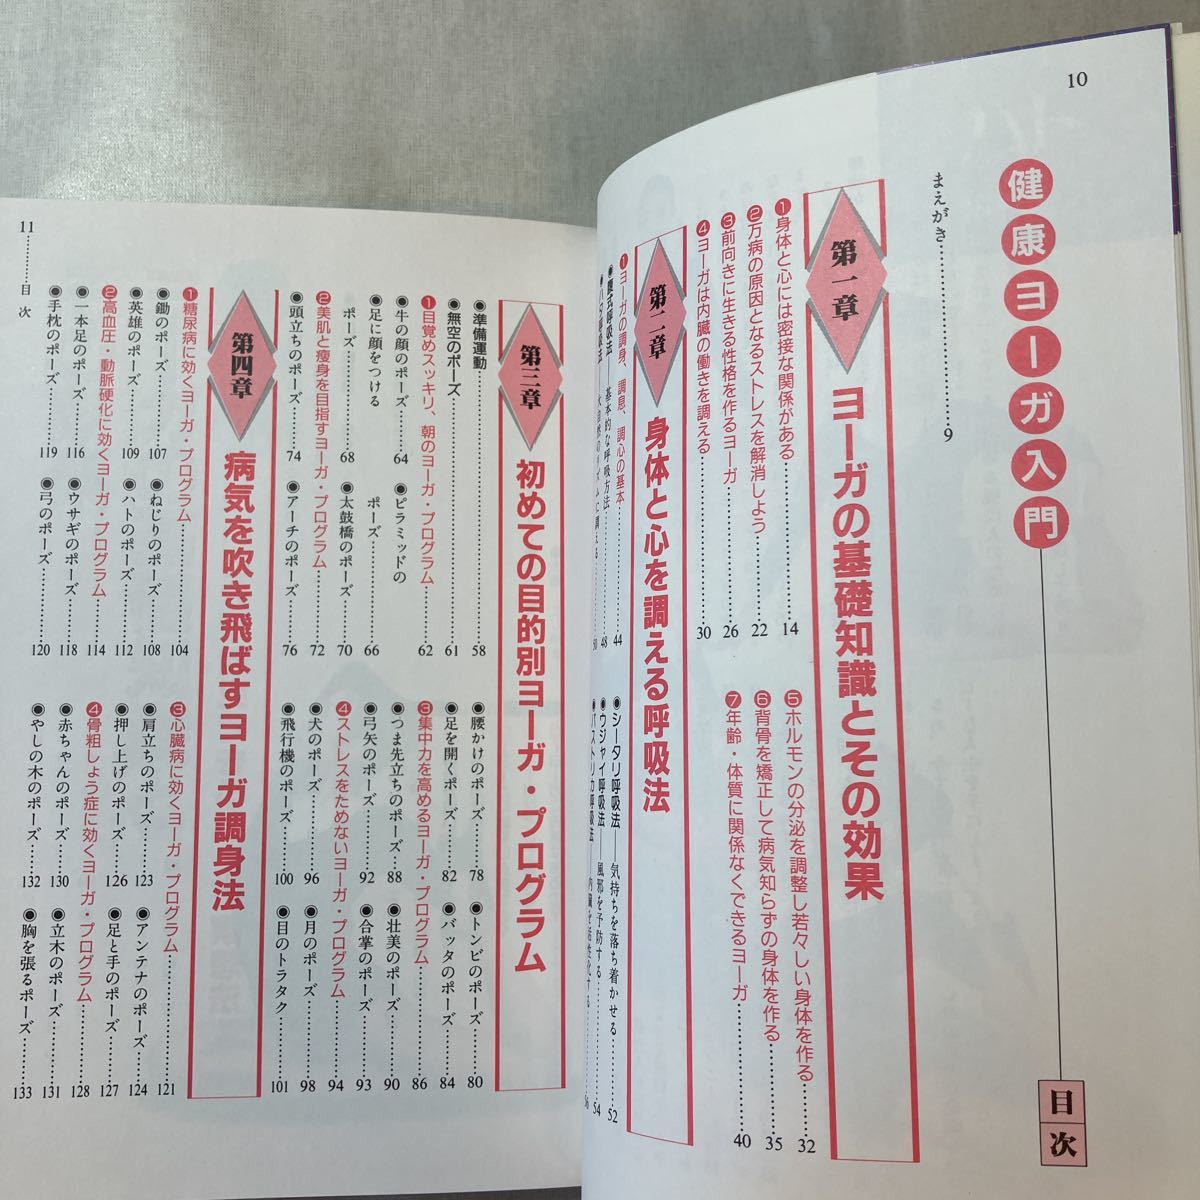 10
健康ヨーガ入門
目次
まえがき……9
第一章
ヨーガの基礎知識とその効果
❶身体と心には密接な関係がある……14
❷万病の原因となるストレスを解消しよう……22
❸前向きに生きる性格を作るヨーガ……26
❹ヨーガは内臓の働きを調える……30
❺ホルモンの分泌を調整し若々しい身体を作る……32
❻背骨を矯正して病気知らずの身体を作る……35
❼年齢・体質に関係なくできるヨーガ……40
第二章
身体と心を調える呼吸法
❶ヨーガの調身、調息、調心の基本……44
◉腹式呼吸法――基本的な呼吸方法……48
◉シータリ呼吸法――気持ちを落ち着かせる……52
◉ウジャイ呼吸法――風邪を予防する……54
第三章
初めての目的別ヨーガ・プログラム
◉準備運動……58
◉無空のポーズ……61
❶目覚めスッキリ、朝のヨーガ・プログラム……62
◉牛の顔のポーズ……64
◉ピラミッドのポーズ……66
◉足に顔をつけるポーズ……68
◉太鼓橋のポーズ……70
❷美肌と痩身を目指すヨーガ・プログラム……72
◉頭立ちのポーズ……74
◉アーチのポーズ……76
◉腰かけのポーズ……78
◉トンビのポーズ……80
◉足を開くポーズ……82
◉バッタのポーズ……84
❸集中力を高めるヨーガ・プログラム……86
◉つま先立ちのポーズ……88
◉壮美のポーズ……90
◉弓矢のポーズ……92
◉合掌のポーズ……93
❹ストレスをためないヨーガ・プログラム……94
◉犬のポーズ……96
◉月のポーズ……98
◉飛行機のポーズ……100
◉目のトラタク……101
第四章
病気を吹き飛ばすヨーガ調身法
❶糖尿病に効くヨーガ・プログラム……104
◉鋤のポーズ……107
◉ねじりのポーズ……108
◉英雄のポーズ……109
◉ハトのポーズ……112
❷高血圧・動脈硬化に効くヨーガ・プログラム……114
◉一本足のポーズ……116
◉ウサギのポーズ……118
◉手枕のポーズ……119
◉弓のポーズ……120
❸心臓病に効くヨーガ・プログラム……121
◉肩立ちのポーズ……123
◉アンテナのポーズ……124
◉押し上げのポーズ……126
◉足と手のポーズ……127
❹骨粗しょう症に効くヨーガ・プログラム……128
◉赤ちゃんのポーズ……130
◉立木のポーズ……131
◉やしの木のポーズ……132
◉胸を張るポーズ……133
11……目次